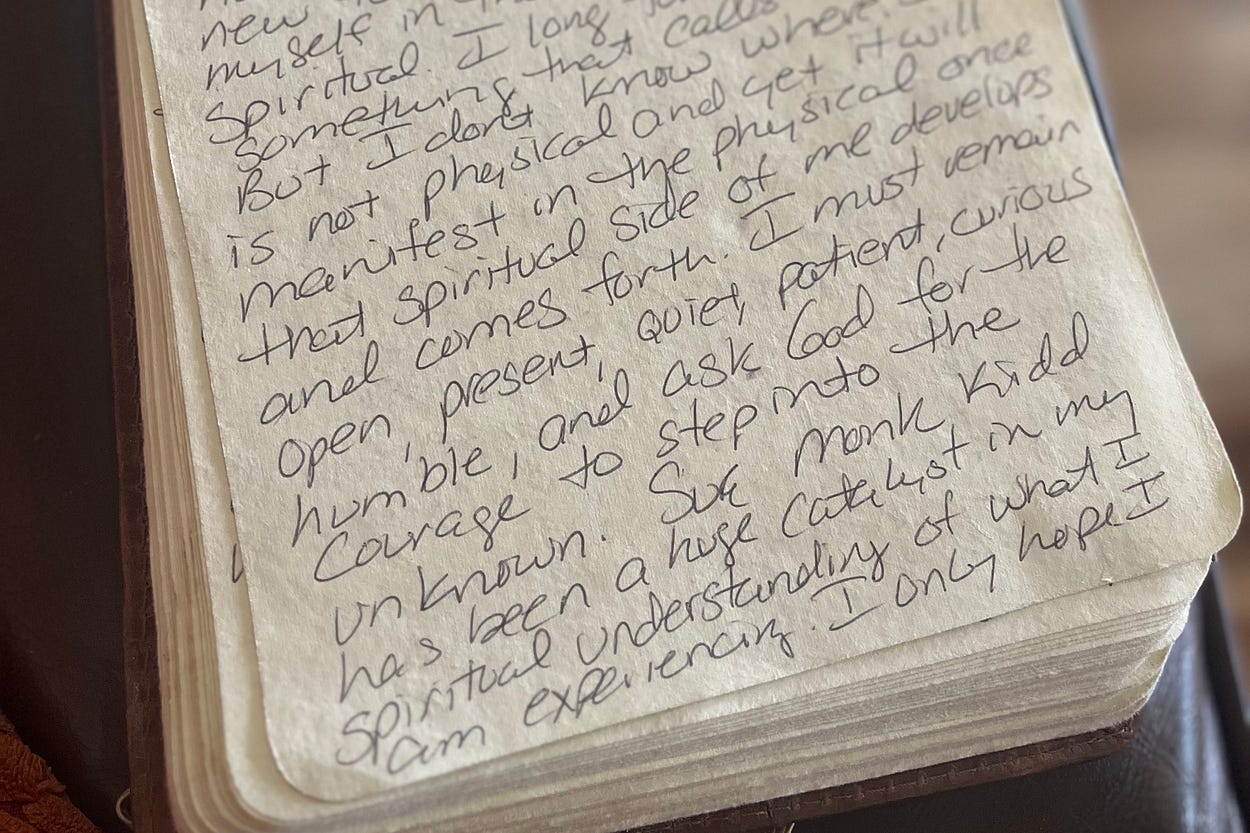 new
myself in
spiritual. I long
something that calls
But I don't know where.
is not physical and yet it will
manifest in the physical once
that spiritual side of me develops
and comes forth. I must remain
open, present, quiet, patient, curious
humble, and ask God for the
courage to step into the
unknown. Sue Monk Kidd
has been a huge catalyst in my
spiritual understanding of what I
am experiencing. I only hope I